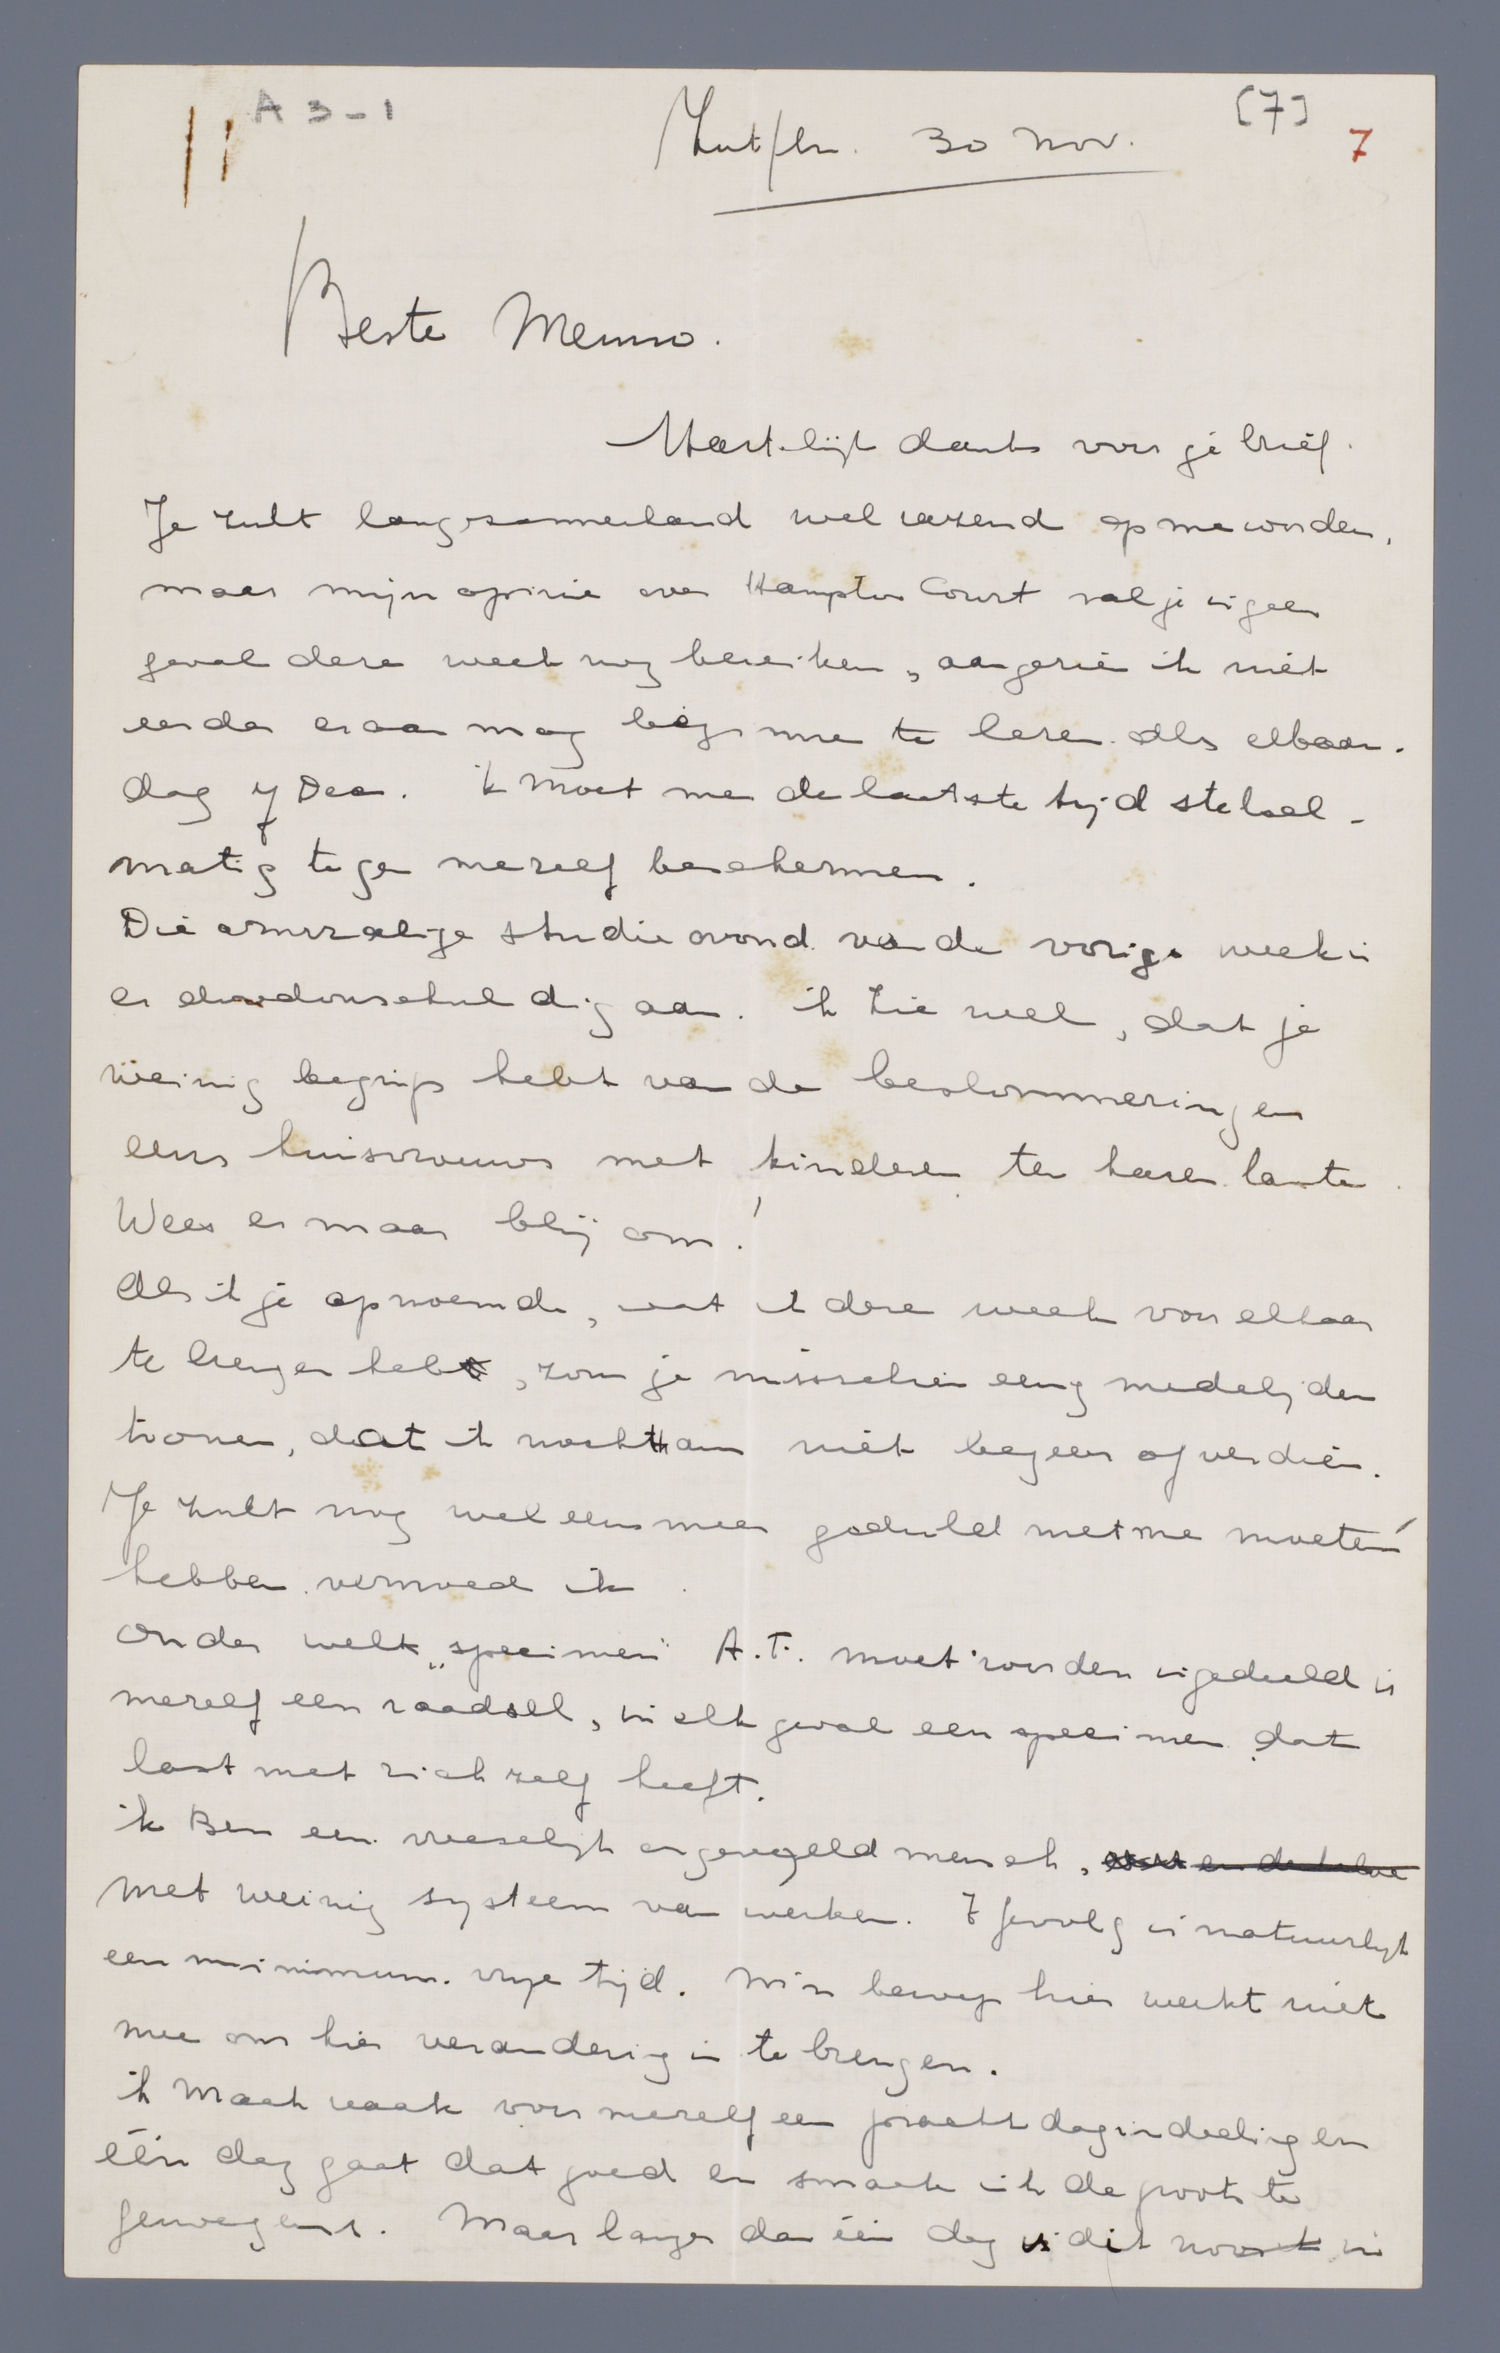 A 3-1
[7]
7
Zutfen. 30 Nov.
Beste Menno.
Hartelijk dank voor je brief.
Je zult langzamerhand wel razend op me worden,
maar mijn opinie over Hampton Court zal je in geen
geval deze week nog bereiken, aangezien ik niet
eerder eraan mag beginnen te lezen als
dag 7 Dec. ik moet me de laatste tijd stelsel-
matig tegen mezelf beschermen.
Die armzalige studie avond van de vorige week is
er doodonschuldig aan. ik zie wel, dat je
weinig begrip hebt van de beslommeringen
eens huisvrouws met kinderen ten haren laste.
Wees er maar blij om!
Als ik je opnoemde, wat ik deze week voor elkaar
te brengen heb, zou je misschien eenig medelijden
toonen, dat ik nochthans niet begeer of verdien.
Je zult nog wel eens meer geduld met me moeten
hebben vermoed ik.
Onder welk „specimen" A.T. moet worden ingedeeld is
mezelf een raadsel, in elk geval een specimen dat
last met zich zelf heeft.
ik Ben een vreeselijk ongeregeld mensch, en de halve
met weinig systeem van werken. 't gevolg is natuurlijk
een minimum vrije tijd. Mijn hier werkt niet
mee om hier verandering in te brengen.
ik Maak vaak voor mezelf een pracht dagindeeling en
één dag gaat dat goed en smaak ik de groots te
genoegens. Maar langer dan één dag is dit nooit in